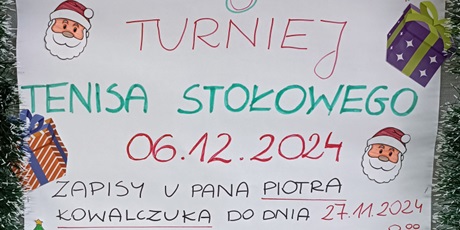 TURNIEJ
TENISA STOŁOWEGO
06.12.2024
ZAPISY U PANA PIOTRA
KOWALCZUKA DO DNIA 27.11.2024